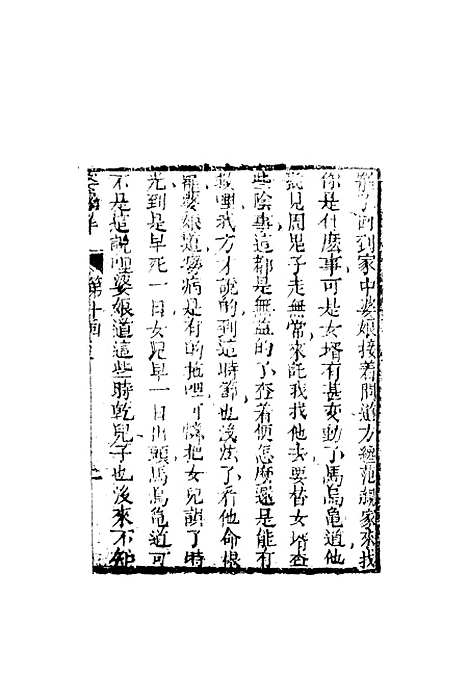 回到家中婆娘接着問道方纔范親家來找
你是什麼事可是女壻有甚女動了馬烏龜道他
說見周鬼子走無常來託我找他去要替女壻查
些陰事這都是無益的了查着便怎麼還是能有
哩我方才說的到這時節也沒法了看他命根
罷婆娘道癆病是有的把女兒誤了時
光到是早死一日女兒早一日出頭馬烏龜道可
不是這說哩婆娘道這些時乾兒子也沒來不知
第十回